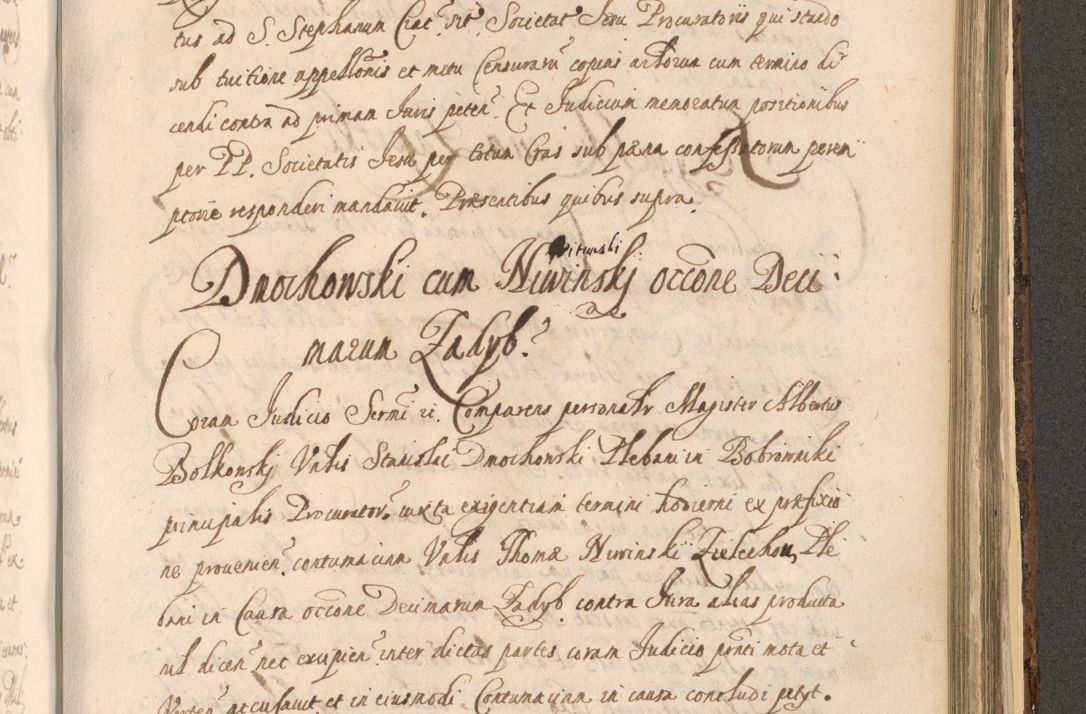 tus ad S. Stephanum Crac: sit. Societat Jesu Procuratoris qui stando
sub tuitione appellonis et metu Censurarum copias actorum cum termino di
cendi contra ad primam Juris peten: Et Judicium memoratum positionibus
per PP. Societatis Jesu per totum Cras sub pæna confessatorum perem
ptorie responderi mandavit. Præsentibus quibus supra.
Dmochowski cum Niwinskj occone Deci:
marum Zadyb:
Coram Judicio Sermi ri. Comparens personalr Magister Albertus
Bolkonskj Vnlis Stanislai Dmochonski Plebani in Bobrowniki
principalis Procurator. iuxta exigentiam termini hodierni ex præfixio
ne provenien: contumaciam Vnlis Thomæ Niwinski Ple
bani in Causa occone Decimarum Zadyb. contra Jura alias producta
nil dicen: nec excipien: inter dictas partes coram Judicio prnti mota et
Verten: accusavit et in eiusmodi Contumaciam in causa concludi petyt.